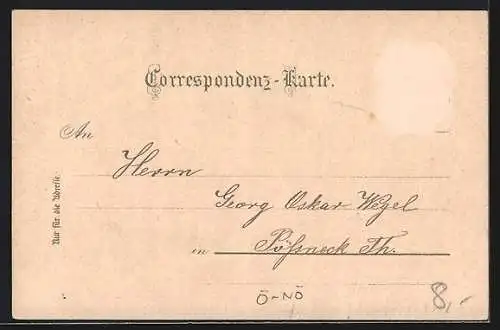 Correspondenz-Karte.
An
Herrn
Georg Oskar Wezel
in Pößneck Th.
Nur für die Adresse.
Ö-NÖ
8,-